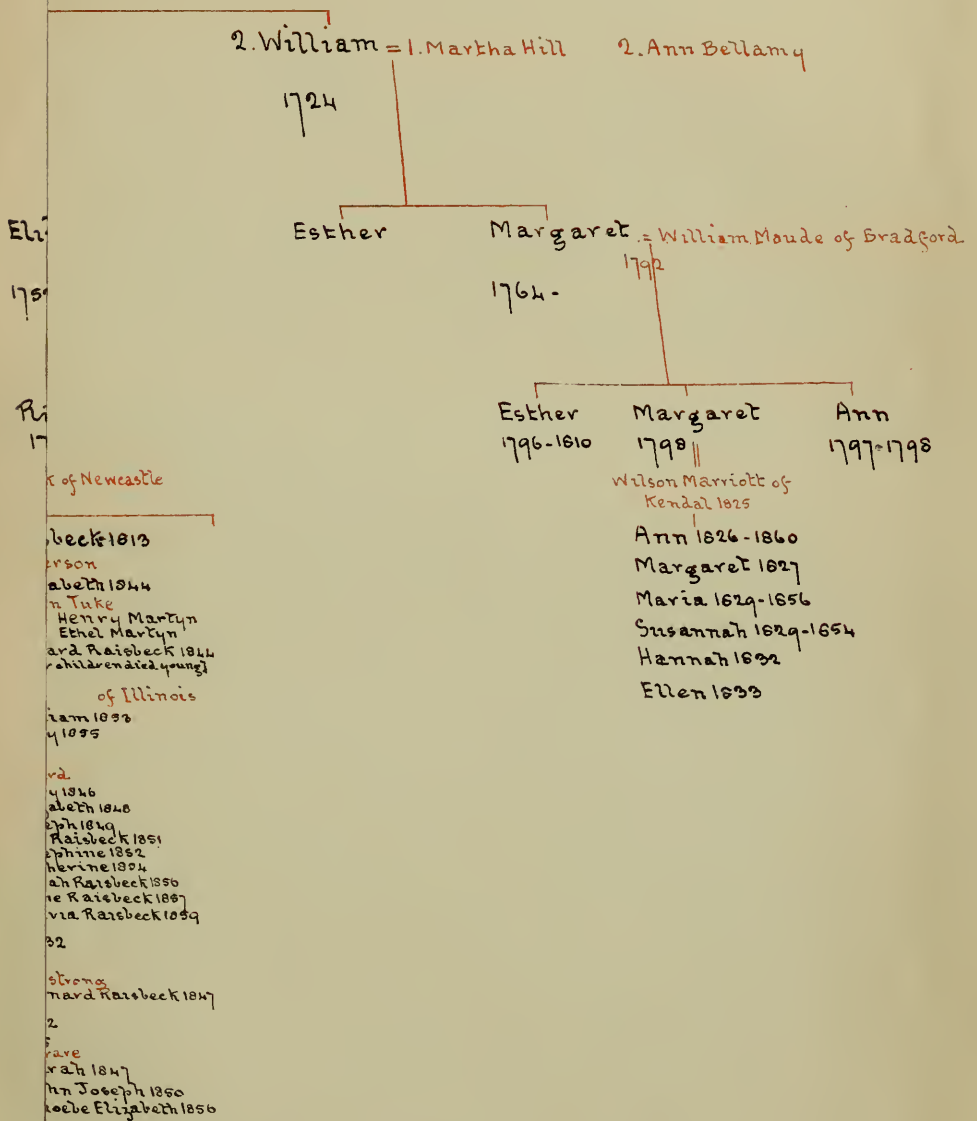 2. William = 1. Martha Hill 2. Ann Bellamy
1724
Eli
Esther
Margaret = William Maude of Bradford
1792
175
1764 -
Ri
17
Esther
1796-1810
Margaret
1798
Ann
1797-1798
Wilson Marriott of
Kendal 1825
Ann 1826-1860
Margaret 1827
Maria 1829-1856
Susannah 1829-1854
Hannah 1832
Ellen 1833
k of Newcastle
beck 1813
erson
abeth 1844
n Tuke
Henry Martyn
Ethel Martyn
ard Raisbeck 1844
r children died young]
of Illinois
iam 1893
y 1895
rd
y 1846
abeth 1848
eph 1849
Raisbeck 1851
ephine 1852
herine 1854
ah Raisbeck 1856
ne Raisbeck 1857
via Raisbeck 1859
32
strong
nard Raisbeck 1847
2
rave
rah 1847
hn Joseph 1850
hoebe Elizabeth 1856